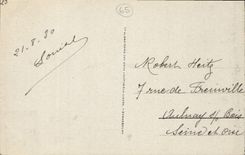 65
21-8-30
Robert Heitz
7 rue de Freuville
Aulnay s/s Bois
Seine et Oise